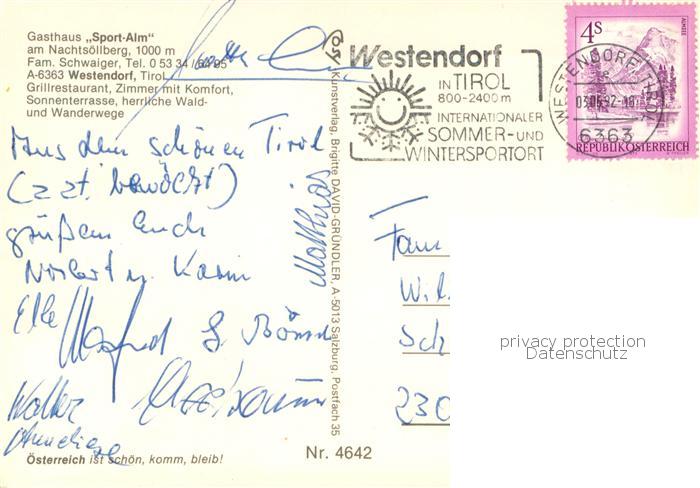 Gasthaus „Sport-Alm"
am Nachtsöllberg, 1000 m
Fam. Schwaiger, Tel. 0 53 34 / 64 95
A-6363 Westendorf, Tirol
Grillrestaurant, Zimmer mit Komfort,
Sonnenterrasse, herrliche Wald-
und Wanderwege
Aus dem schönen Tirol
(z. zt. bewölkt)
grüßen Euch
Norbert u. Karin
Elke Manfred
Walter
Matthias
Österreich ist schön, komm, bleib!
Nr. 4642
Kunstverlag, Brigitte DAVID-GRÜNDLER, A-5013 Salzburg, Postfach 35
Westendorf
IN TIROL
800-2400 m
INTERNATIONALER
SOMMER- UND
WINTERSPORTORT
WESTENDORF, TIROL
6363
4S
ALMSEE
REPUBLIK ÖSTERREICH
Fam
Wil
Sch
230
privacy protection
Datenschutz